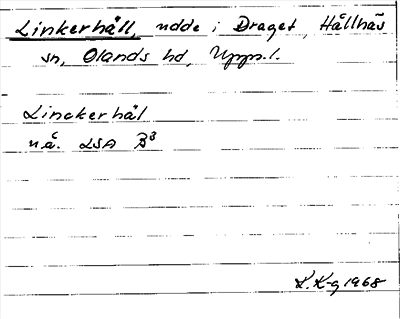 Linkerhäll, udde i Draget, Hållnäs
sn, Olands hd, Upps. l.
Linckerhäl
u.å. LSA B3
L. K-g 1968